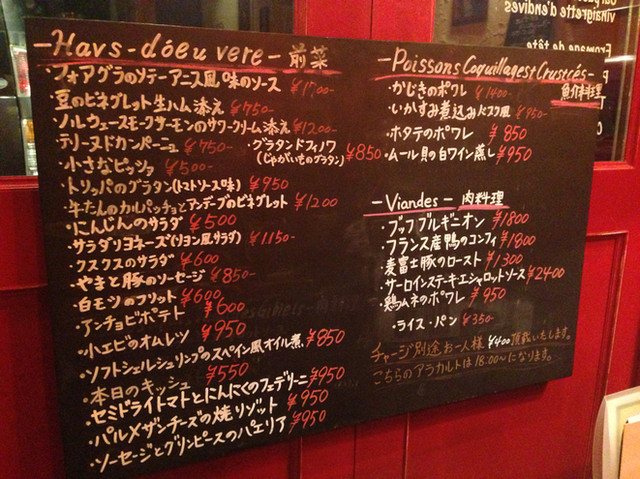 vinaigrette d'endives
Fromage de tête
-Havs-dóeuvere-前菜
・フォアグラのソテーアース風味のソース ¥1700-
豆のビネグレット生ハム添え ¥750-
・ノルウェースモークサーモンのサワークリーム添え ¥1200-
テリーヌドカンパーニュ ¥750-
・グラタンドフィノワ
(じゃがいものグラタン) ¥850
・小さなピッツァ ¥500-
・トリッパのグラタン(トマトソース味) ¥950
・牛たんのカルパッチョとアンディーブのビネグレット ¥1200
・にんじんのサラダ ¥500
・サラダリヨネーズ(リヨン風サラダ) ¥1150-
・クスクスのサラダ ¥600
・やまと豚のソーセージ ¥850-
・白モツのフリット ¥600
・アンチョビポテト ¥600
・小エビのオムレツ ¥950
・ソフトシェルシュリンプのスペイン風オイル煮 ¥850
・本日のキッシュ ¥550
・セミドライトマトとにんにくのフェデリーニ ¥950
・パルメザンチーズの焼リゾット ¥950
・ソーセージとグリンピースのパエリア ¥950
-Poissons Coquillagest Crustcés-
魚介料理
・かじきのポワレ ¥1400-
・いかすみ煮込みバスク風 ¥950-
・ホタテのポワレ ¥850
・ムール貝の白ワイン蒸し ¥950
-Viandes- 肉料理
・ブッフブルギニオン ¥1800
・フランス産鴨のコンフィ ¥1800
・麦富士豚のロースト ¥1300
・サーロインステーキエシャロットソース ¥2400
・鶏ムネのポワレ ¥950
・ライス・パン ¥350-
チャージ別途お一人様 ¥400頂戴いたします。
こちらのアラカルトは18:00〜になります。